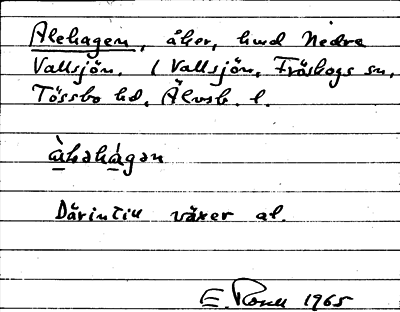 Alehagen, åker, hmd Nedre
Vallsjön. (Vallsjön, Fröskogs sn,
Tössbo hd, Älvsb. l.
Därintill växer al.
E. 1965